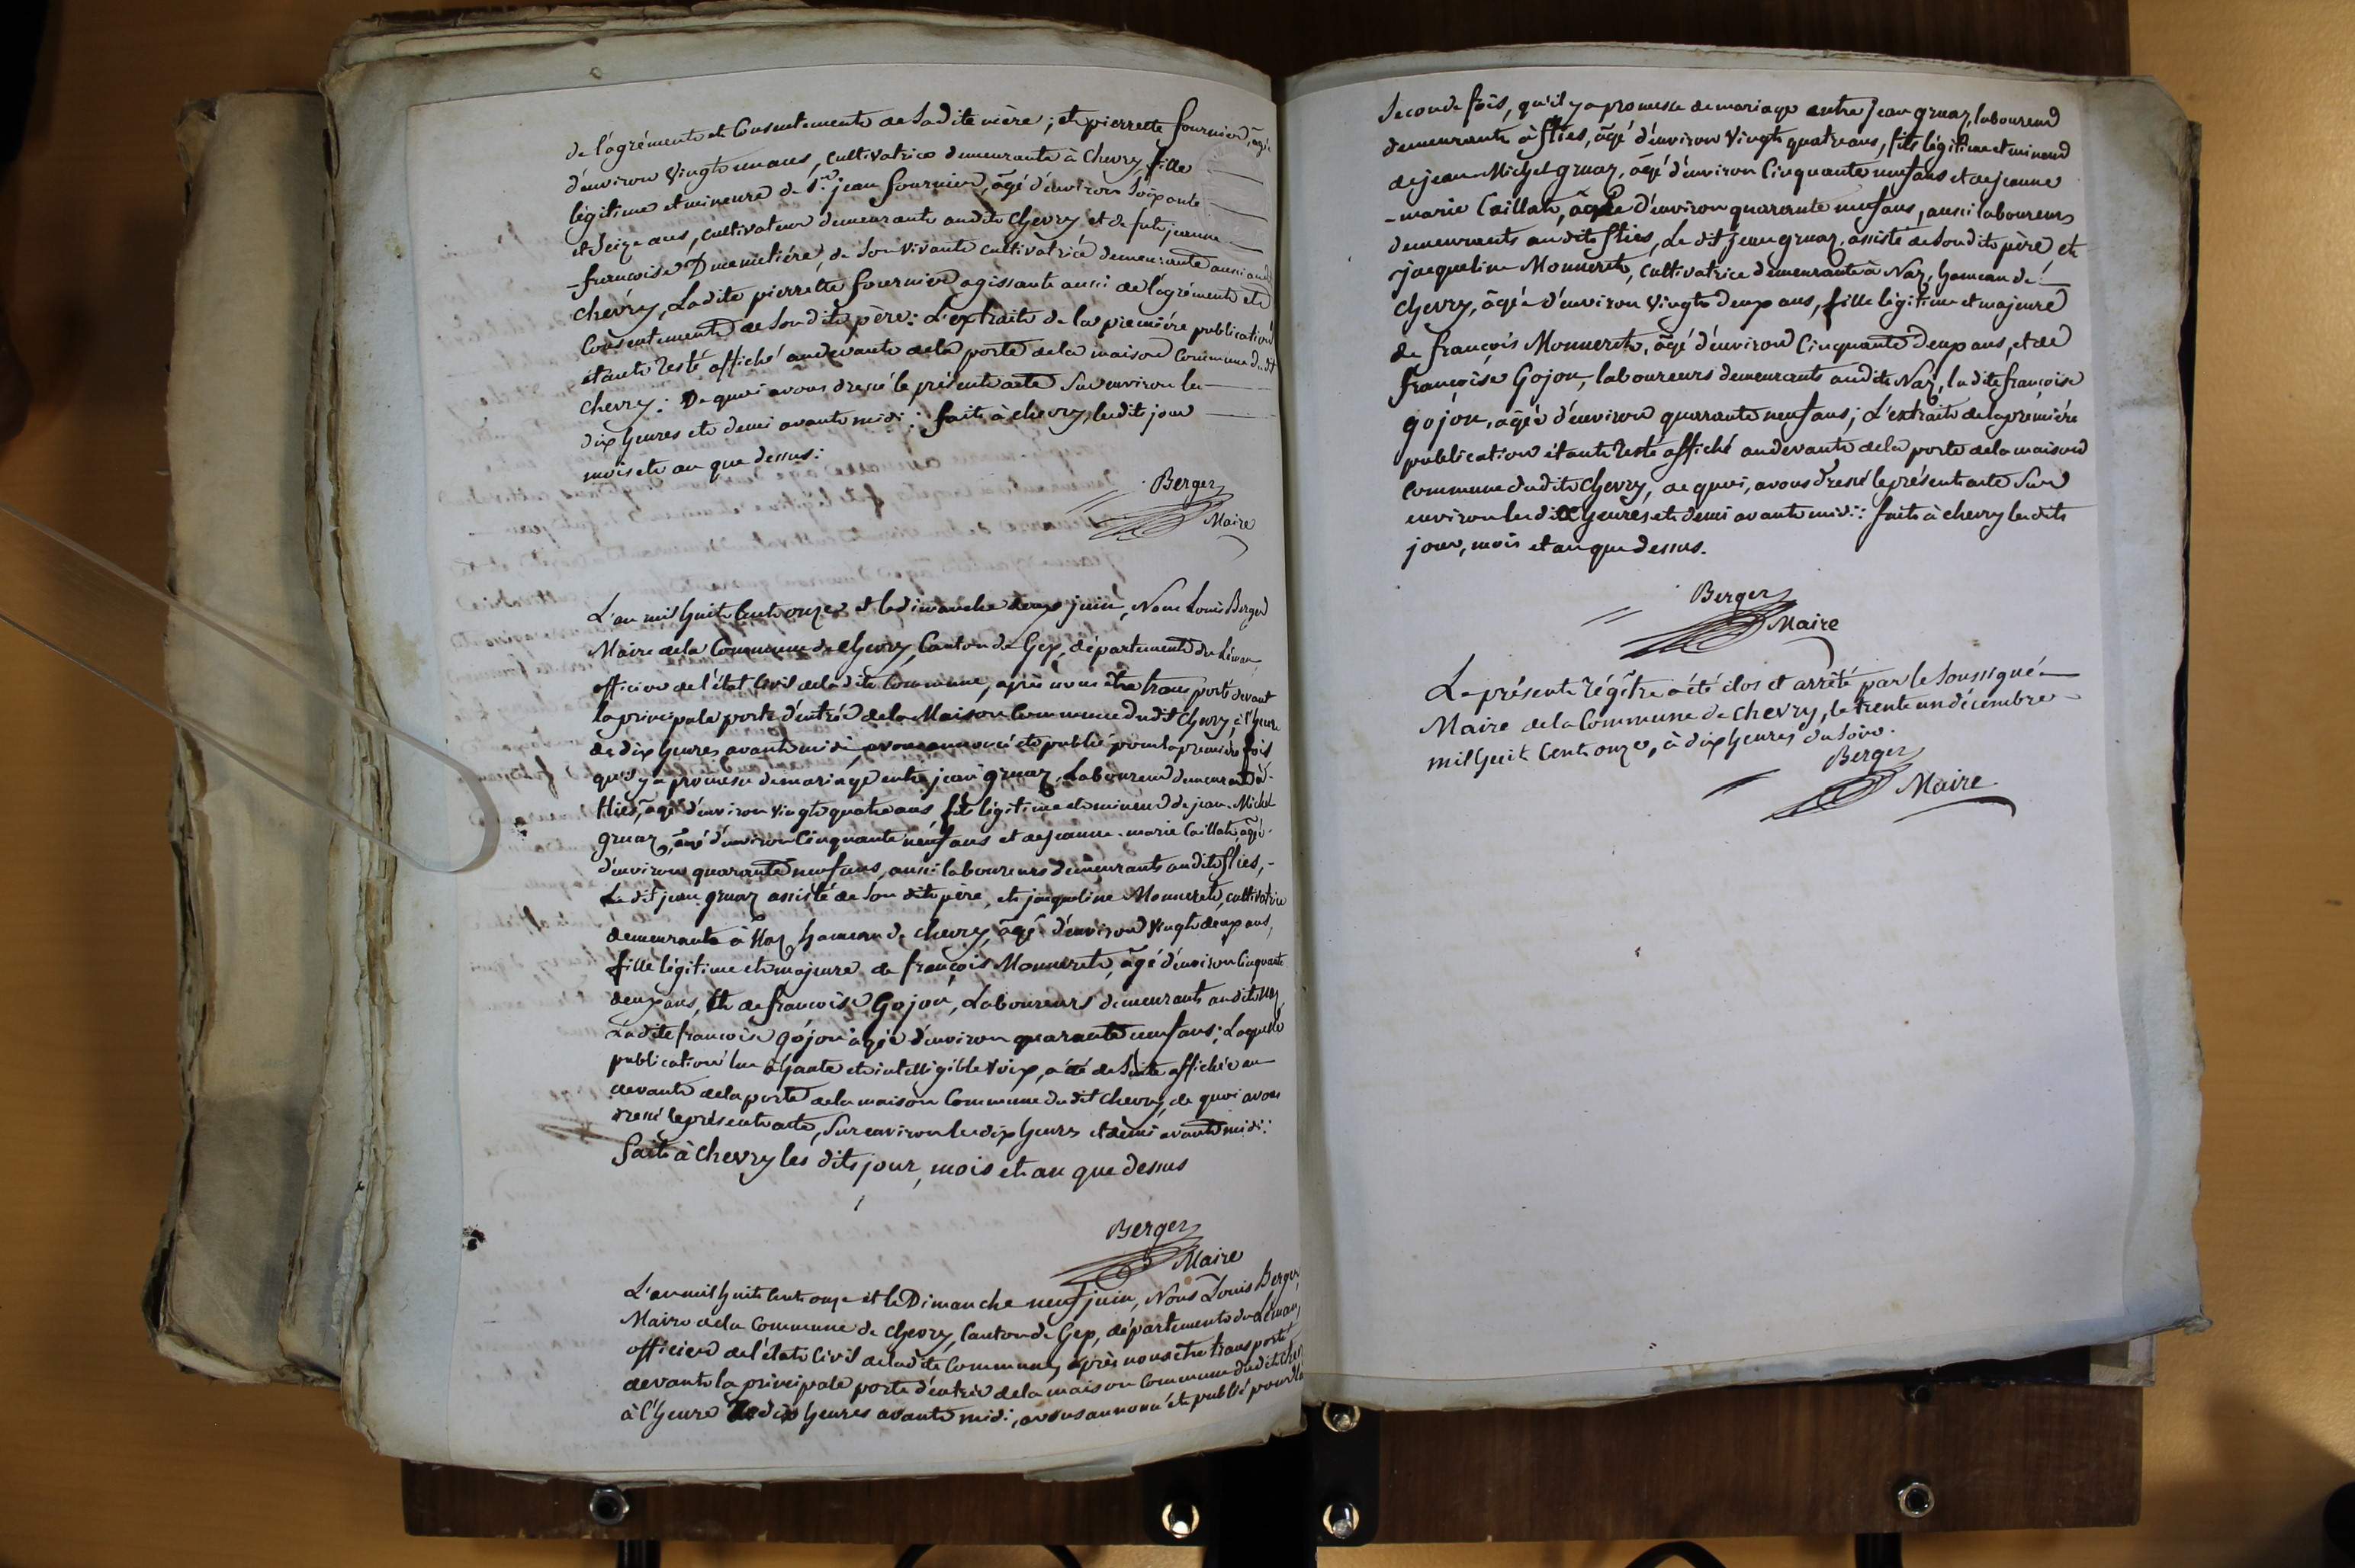 de l'agrément et Consentement de Sadite mère ; et pierrette fournier, agée
d'environ Vingt un ans, cultivatrice demeurante à Chevry, fille
légitime et mineure de Sr. jean fournier, âgé d'environ Soixante
et Seize ans, cultivateur demeurant audit Chevry et de fute jeanne
-françoise Dumeliére, de Son Vivant cultivatrice demeurante aussi audit
Chevry, Ladite pierrette fournier agissante aussi de l'agrément et
Consentement de Son dit père : L'extrait de la première publication
étant resté affiché audevant de la porte de la maison Commune dudit
Chevry : De quoi avons dressé le présent acte Sur environ les
dix heures et demi avant midi : fait à Chevry, ledit jour
mois et an que dessus :
Berger
Maire
L'an mil huit Cent onze et le dimanche deux juin, Nous Louis Berger
Maire de la Commune de Chevry, Canton de Gex, département du Léman
officier de l'état Civil de ladite Commune, après nous être transporté devant
la principale porte d'entrée de la Maison Commune dudit Chevry, à l'heure
de dix heures avant midi, avons annoncé et publié pour la première fois
qu'il y a promesse de mariage entre jean gruaz, Laboureur demeurant à
flies, âgé d'environ Vingt quatre ans, fils légitime et mineur de jean-Michel
gruaz, âgé d'environ Cinquante neuf ans et de jeanne-marie Caillat, agée
d'environ quarante neuf ans, aussi laboureurs demeurants audit flies,-
Le dit jean gruaz assisté de Son dit père, et jaqueline Monneret, cultivatrice
demeurante à Naz hameau de Chevry, âgée d'environ Vingt deux ans,
fille légitime et majeure de françois Monneret, âgé d'environ Cinquante
deux ans, Et de françoise Gojon, Laboureurs demeurants audit Naz
Ladite françoise gojon agée d'environ quarante neuf ans ; Laquelle
publication lue à haute et intelligible Voix, a été de Suite affichée au
devant de la porte de la maison Commune dudit Chevry, de quoi avons
dressé le présent acte, Sur environ les dix heures et demi avant midi :
fait à Chevry les dits jour, mois et an que dessus
Berger
Maire
L'an mil huit Cent onze et le Dimanche neuf juin, Nous Louis Berger,
Maire de la Commune de Chevry, Canton de Gex, département du Léman,
officier de l'état Civil de ladite Commune, après nous être transporté
devant la principale porte d'entrée de la maison Commune dudit Chevry
à l'heure de dix heures avant midi, avons annoncé et publié pour la
Seconde fois, qu'il y a promesse de mariage entre jean gruaz, laboureur
demeurant à flies, âgé d'environ Vingt quatre ans, fils légitime et mineur
de jean-Michel gruaz, âgé d'environ Cinquante neuf ans et de jeanne
-marie Caillat, agée d'environ quarante neuf ans, aussi laboureurs
demeurants audit flies, Le dit jean gruaz, assisté de Son dit père, et
jaqueline Monneret, Cultivatrice demeurante à Naz, hameau de
Chevry, âgée d'environ Vingt deux ans, fille légitime et majeure
de françois Monneret, âgé d'environ Cinquante deux ans, et de
françoise Gojon, laboureurs demeurants audit Naz, ladite françoise
gojon, agée d'environ quarante neuf ans ; L'extrait de la première
publication étant resté affiché audevant de la porte de la maison
Commune dudit Chevry, de quoi, avons dressé le présent acte Sur
environ les dix heures et demi avant midi : fait à chevry les dits
jour, mois et an que dessus.
Berger
Maire
Le présent régître a été clos et arrêté par le Soussigné
Maire de la Commune de Chevry, le trente un décembre
mil huit Cent onze, à dix heures du Soir.
Berger
Maire